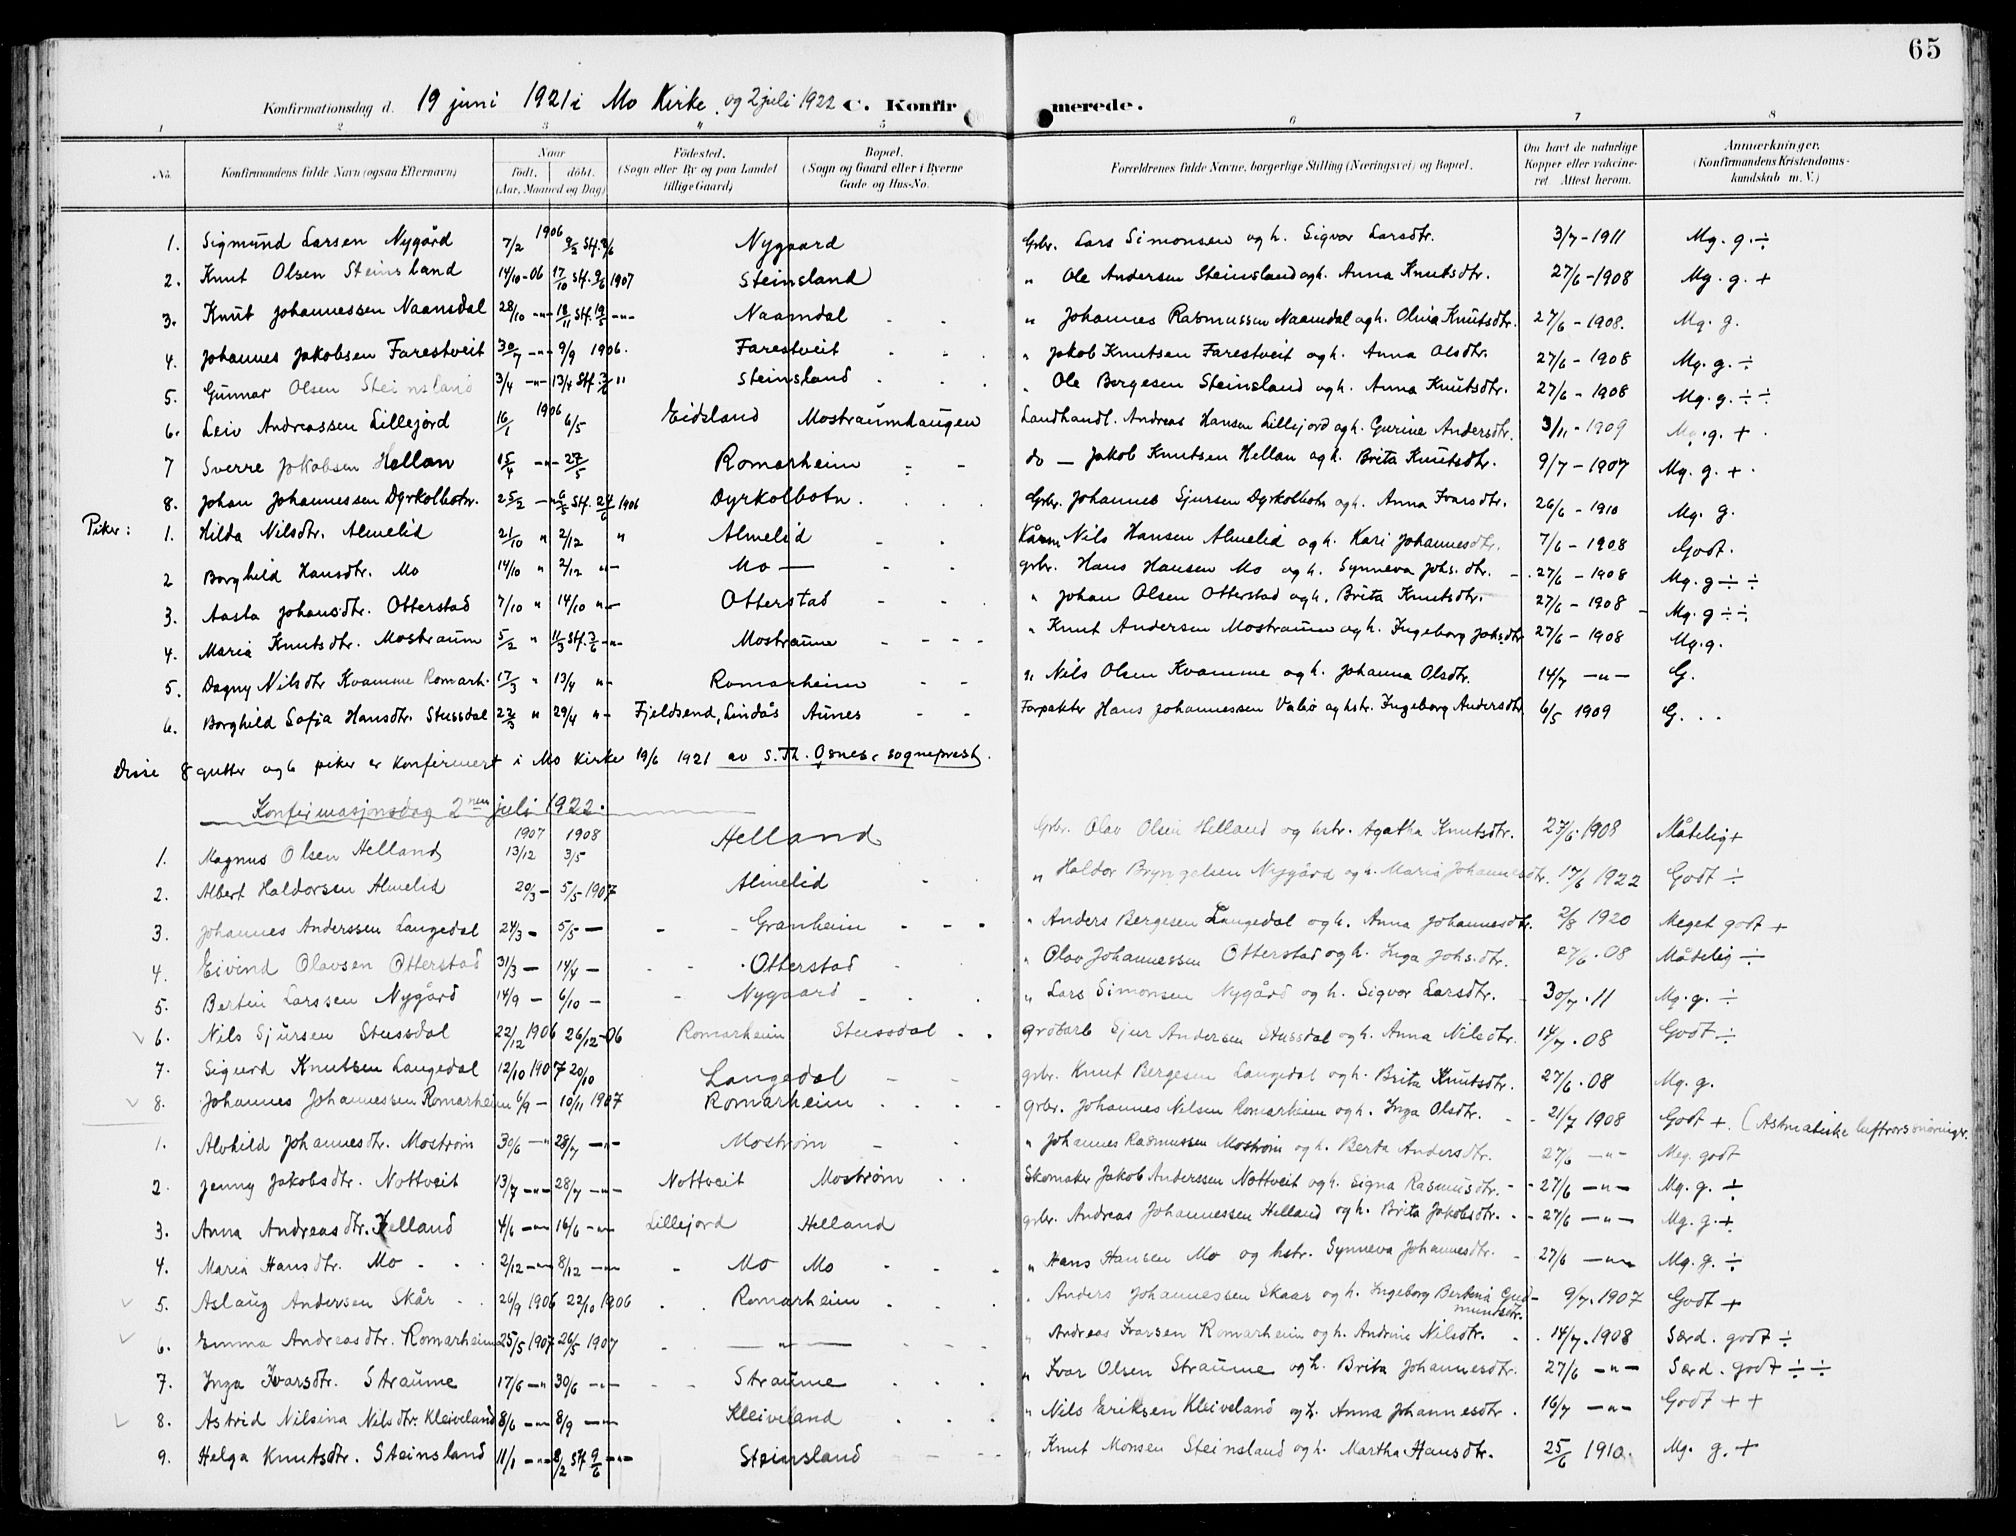 65
Konfirmationsdag d. 19 juni 1921 i Mo Kirke. og 2 juli 1922 C. Konfirmerede.
1 2 3 " 5 6 7 8
No. Konfirmandens fulde Navn (ogsaa Efternavn) Naar Födt. döbt. (Aar, Maaned og Dag) Födested. (Sogn eller By og paa Landet tillige Gaard) Bopæl. (Sogn og Gaard eller i Byerne Gade og Hus-No. Forældrenes fulde Navne, borgerlige Stilling (Næringsvei) og Bopæl. Om havt de naturlige Kopper eller vakcineret. Attest herom. Anmærkninger. (Konfirmandens Kristendomskundskab m. V.)
1. Sigmund Larsen Nygård 7/2 1906 Nygaard Grbr. Lars Simonsen og h. Sigvor Larsdtr. 3/7-1911 Mg. g. ÷
2. Knut Olsen Steinsland 14/10-06 17/10 Stf. 9/6 1907 Steinsland " Ole Andersen Steinsland og h. Anna Knutsdtr. 27/6-1908 Mg. g. +
3. Knut Johannessen Naamdal 28/10 -"- 18/11 Stf. 19/5 -"- Naamdal " Johannes Rasmussen Naamdal og h. Olina Knutsdtr. 27/6-1908. Mg. g.
4. Johannes Jakobsen Farestveit 30/7 -"- 9/9 1906. Farestveit " Jakob Knutsen Farestveit og h. Anna Olsdtr. 27/6-1908 Mg. g. ÷
5. Gunnar Olsen Steinsland 3/4 -"- 13/4 Stf. 3/6 " Steinsland " Ole Borgesen Steinsland og h. Anna Knutsdtr. 27/6-1908 Mg. g. ÷ ÷
6. Leiv Andreassen Lillejord 16/1 1906 6/5 Eidsland Mostraumhaugen Landhandl. Andreas Hansen Lillejord og h. Gurine Andersdtr. 3/11-1909 Mg. g. +
7 Sverre Jakobsen Hellan 15/4 -"- 27/5 Romarheim do — Jakob Knutsen Hellan og h. Brita Knutsdtr. 9/7-1907 Mg. g. +
8. Johan Johannessen Dyrkolbotn. 25/2 -"- 6/5 Stf. 24/6 1906 Dyrkolbotn. Grbr. Johannes Sjursen Dyrkolbotn og h. Anna Ivarsdtr. 26/6-1910 Mg. g.
Piker: 1. Hilda Nilsdtr. Almelid 21/10 " 2/12 " Almelid Nils Hansen Almelid og h. Kari Johannesdtr. 7/6-1908 Godt.
2 Borghild Hansdtr. Mo 14/10 " 2/12 "- Mo — grbr. Hans Hansen Mo og h. Synneva Johs. dtr. 27/6-1908 Mg. g ÷ ÷
3. Aasta Johansdtr. Otterstad 7/10 " 14/10 "- Otterstad " Johan Olsen Otterstad og h. Brita Knutsdtr. 27/6-1908 Mg. g ÷÷
4. Maria Knutsdtr. Mostraum 5/2 " 11/3 Stf. 3/6 -"- Mostraum " Knut Andersen Mostraum og h. Ingeborg Johsdtr 27/6-1908 Mg. g.
5. Dagny Nilsdtr Kvamme Romarh. 17/3 " 13/4 "- Romarheim " Nils Olsen Kvamme og h. Johanna Olsdtr. 14/7 -"- G.
6. Borghild Sofia Hansdtr. Stussdal 22/3 " 29/4 "- Fjeldsend, Lindås Aunes Forpakter Hans Johannessen Valsø og hstr. Ingeborg Andersdtr 6/5 1909 G. . .
Disse 8 gutter og 6 piker er konfirmert i Mo Kirke 19/6 1921 av S. Th. Osnes, sogneprest.
Konfirmasjonsdag 2nen juli 1922.
1. Magnus Olsen Helland 1907 13/12 1908 3/5 Helland Grbr. Olav Olsen Helland og hstr. Agatha Knutsdtr. 27/6-1908 Måtelig +
2. Albert Haldorsen Almelid 20/3 - 5/5 1907 Almelid " Haldor Bryngelsen Nygård og h. Maria Johannesdtr. 17/6 1922 Godt ÷
3. Johannes Anderssen Langedal 24/3 - 5/5 — Granheim " Anders Bergesen Langedal og h. Anna Johannesdtr. 2/8 1920 Meget godt +
4. Eivind Olavsen Otterstad 31/3 — 14/4 — Otterstad " Olav Johannessen Otterstad og h. Inga Johs.dtr. 27/6.08 Måtelig ÷
5. Bertin Larssen Nygård 14/9 — 6/10 — Nygaard " Lars Simonsen Nygård og h. Sigvor Larsdtr. 30/7.11 Mg. g. ÷
6. Nils Sjursen Stussdal 22/12 1906 26/12-06 Romarheim Stussdal grdbarb Sjur Andersen Stussdal og h. Anna Nilsdtr. 14/7.08 Godt ÷
7. Sigurd Knutsen Langedal 12/10 1907 20/10 Langedal grbr. Knut Bergesen Langedal og h. Brita Knutsdtr. 27/6.08 Mg. g.
8. Johannes Johannessen Romarheim 6/9 - 10/11 1907 Romarheim grbr. Johannes Nilsen Romarheim og h. Inga Olsdtr. 21/7 1908 Godt +. (Astmatiske
1. Alvhild Johannesdtr. Mostrøm 30/6 -"- 28/7 -"- Mostrøm " Johannes Rasmussen Mostrøm og h. Berta Andersdtr. 27/6 -"- Meg. godt
2. Jenny Jakobsdtr. Nottveit 13/7 -"- 28/7 -"- Nottveit Mostrøm Skomaker Jakob Anderssen Nottveit og h. Signa Rasmusdtr. 27/6 -"- Mg. g. ÷
3. Anna Andreasdtr. Helland 4/6 -"- 16/6 -"- Lillejord Helland grbr. Andreas Johannessen Helland og h. Brita Jakobsdtr. 27/6 -"- Mg. g. +
4. Maria Hansdtr. Mo 2/12 -"- 8/12 -"- Mo Mo " Hans Hansen Mo og hstr. Synneva Johannesdtr. 27/6 -"- Mg. g. ÷
5. Aslaug Andersen Skår 26/9 1906 22/10 1906 Romarheim " Anders Johannessen Skaar og h. Ingeborg Berkna Gudmundsdtr. 9/7.1907 Godt +
6. Emma Andreasdtr. Romarheim 25/5 1907 26/5 1907 — " — " Andreas Ivarsen Romarheim og h. Andrine Nilsdtr. 14/7.1908 Særd. godt ÷
7. Inga Ivarsdtr. Straume 17/6 -"- 30/6 -"- Straume " Ivar Olsen Straume og h. Brita Johannesdtr. 27/6 -"- Særd. godt ÷ ÷
8. Astrid Nilsina Nilsdtr. Kleiveland 8/6 -"- 8/9 -"- Kleiveland " Nils Eriksen Kleiveland og h. Anna Johannesdtr. 16/7 -"- Godt + +
9. Helga Knutsdtr. Steinsland 11/1 -"- 8/2 Stf 9/6 -"- Steinsland " Knut Monsen Steinsland og h. Martha Hansdtr. 25/6 1910. Mg. g. +